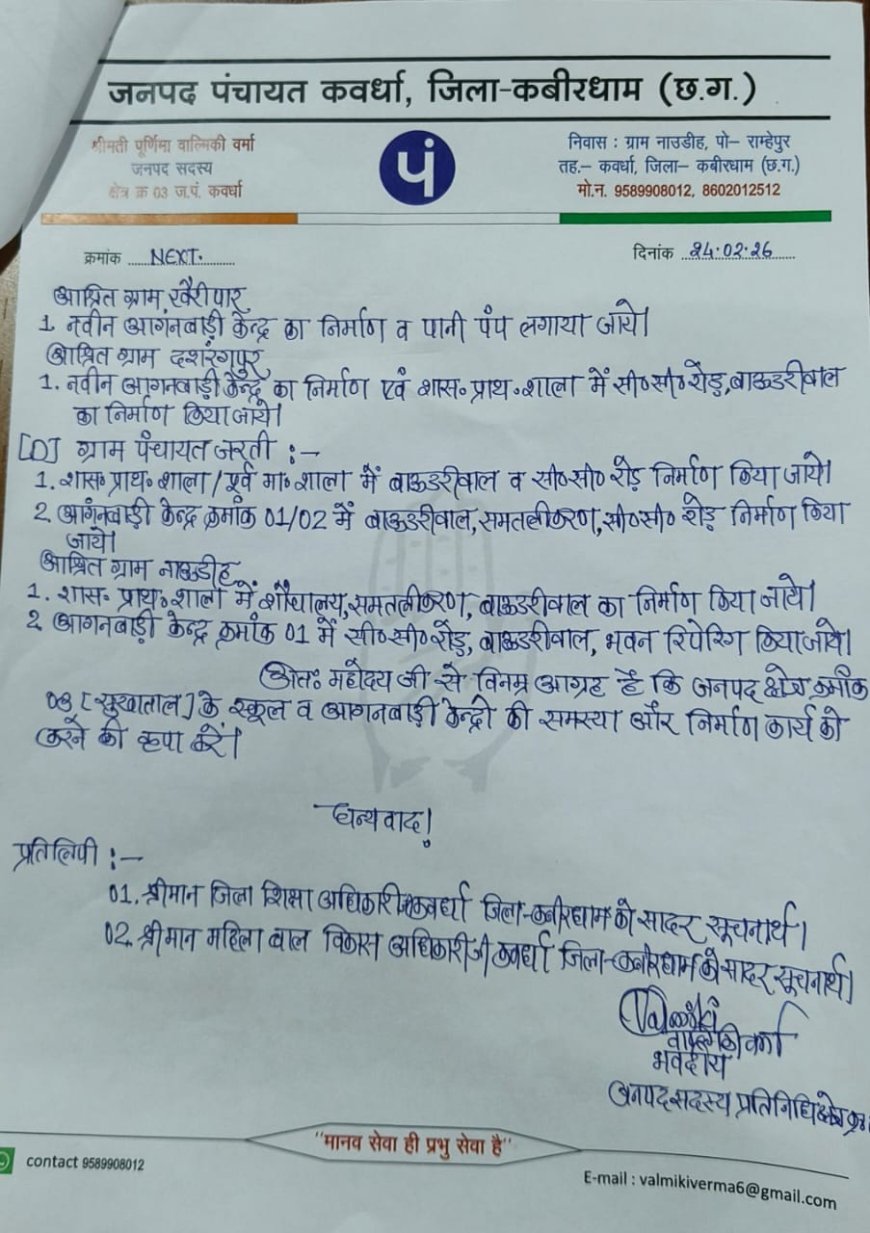 जनपद पंचायत कवर्धा, जिला-कबीरधाम (छ.ग.)
श्रीमती पूर्णिमा वाल्मिकी वर्मा
जनपद सदस्य
क्षेत्र क्र 03 ज.पं. कवर्धा
पं
निवास : ग्राम नाउडीह, पो– राम्हेपुर
तह.– कवर्धा, जिला– कबीरधाम (छ.ग.)
मो.न. 9589908012, 8602012512
क्रमांक ..... NEXT. ..........
दिनांक ..24.02.26......
आश्रित ग्राम खैरीपार
1. नवीन आगंनबाड़ी केन्द्र का निर्माण व पानी पंप लगाया जाये।
आश्रित ग्राम दशरंगपुर
1. नवीन आगनबाड़ी केन्द्र का निर्माण एवं शास॰ प्राथ॰ शाला में सी॰सी॰ रोड़, बाऊडरीवाल
का निर्माण किया जाये।
[D] ग्राम पंचायत जरती :–
1. शास॰ प्राथ॰ शाला / पूर्व मा॰ शाला में बाऊडरीवाल व सी॰सी॰ रोड़ निर्माण किया जाये।
2. आगंनबाड़ी केन्द्र क्रमांक 01/02 में बाऊडरीवाल, समतलीकरण, सी॰सी॰ रोड़ निर्माण किया
जाये।
आश्रित ग्राम नाऊडीह
1. शास॰ प्राथ॰ शाला में शौचालय, समतलीकरण, बाऊडरीवाल का निर्माण किया जाये।
2. आगनबाड़ी केन्द्र क्रमांक 01 में सी॰सी॰ रोड़, बाऊडरीवाल, भवन रिपेरिंग किया जाये।
अतः महोदय जी से विनम्र आग्रह है कि जनपद क्षेत्र क्रमांक
03 [सुखाताल] के स्कूल व आगनबाड़ी केन्द्रो की समस्या और निर्माण कार्य को
करने की कृपा करें।
धन्यवाद!
प्रतिलिपी :–
01. श्रीमान जिला शिक्षा अधिकारी जी कवर्धा जिला-कबीरधाम को सादर सूचनार्थ।
02. श्रीमान महिला बाल विकास अधिकारी जी कवर्धा जिला-कबीरधाम को सादर सूचनार्थ।
Valmiki
वाल्मिकी वर्मा
भवदीय
जनपद सदस्य प्रतिनिधि क्षेत्र क्र॰
"मानव सेवा ही प्रभु सेवा है"
contact 9589908012
E-mail : valmikiverma6@gmail.com